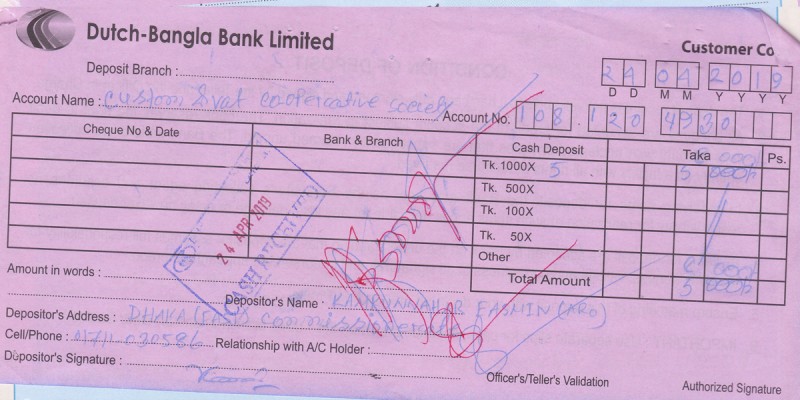 Dutch-Bangla Bank Limited
Customer Co
Deposit Branch :
24 04 2019
D D M M Y Y Y Y
Account Name : Custom & vat cooperative society
Account No. 108 . 120 4930
Cheque No & Date Bank & Branch Cash Deposit Taka Ps.
Tk. 1000X 5 5 000/-
Tk. 500X
Tk. 100X
Tk. 50X
Other
24 APR 2019
CASH RECEIVED
Total Amount 5 000/-
Amount in words :
Depositor's Name : (ARO)
Depositor's Address : DHAKA (EAST) Commissionerate
Cell/Phone : 01711-030586 Relationship with A/C Holder :
Depositor's Signature :
Officer's/Teller's Validation
Authorized Signature